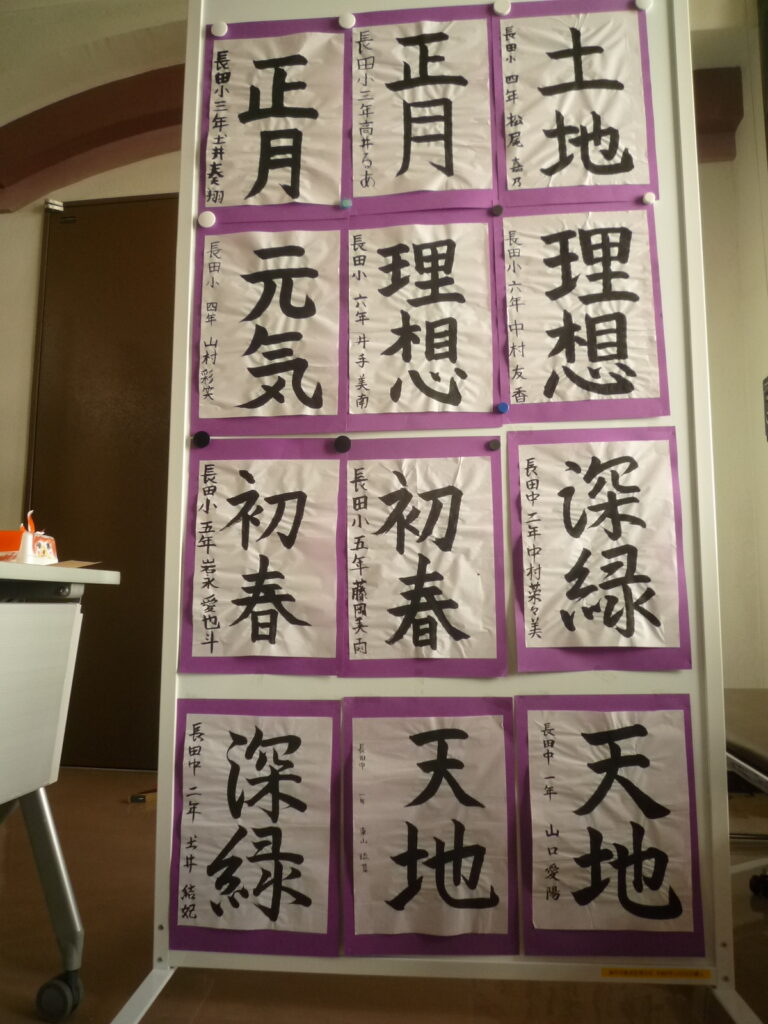 正月
長田小三年土井奏翔
正月
長田小三年高井るあ
土地
長田小 四年 松尾 嘉乃
元気
長田小 四年 山村彩笑
理想
長田小 六年 井手美南
理想
長田小 六年 中村友香
初春
長田小 五年 岩永愛也斗
初春
長田小 五年 藤岡美雨
深緑
長田中 二年 中村菜々美
深緑
長田中 二年 土井 結妃
天地
長田中 一年
天地
長田中 一年 山口愛陽